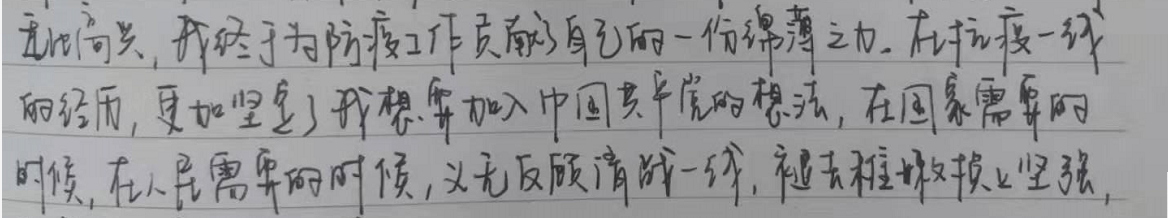 无比高兴，我终于为防疫工作贡献了自己的一份绵薄之力。在抗疫一线
的经历，更加坚定了我想要加入中国共产党的想法，在国家需要的
时候，在人民需要的时候，义无反顾请战一线，褪去稚嫩换上坚强，